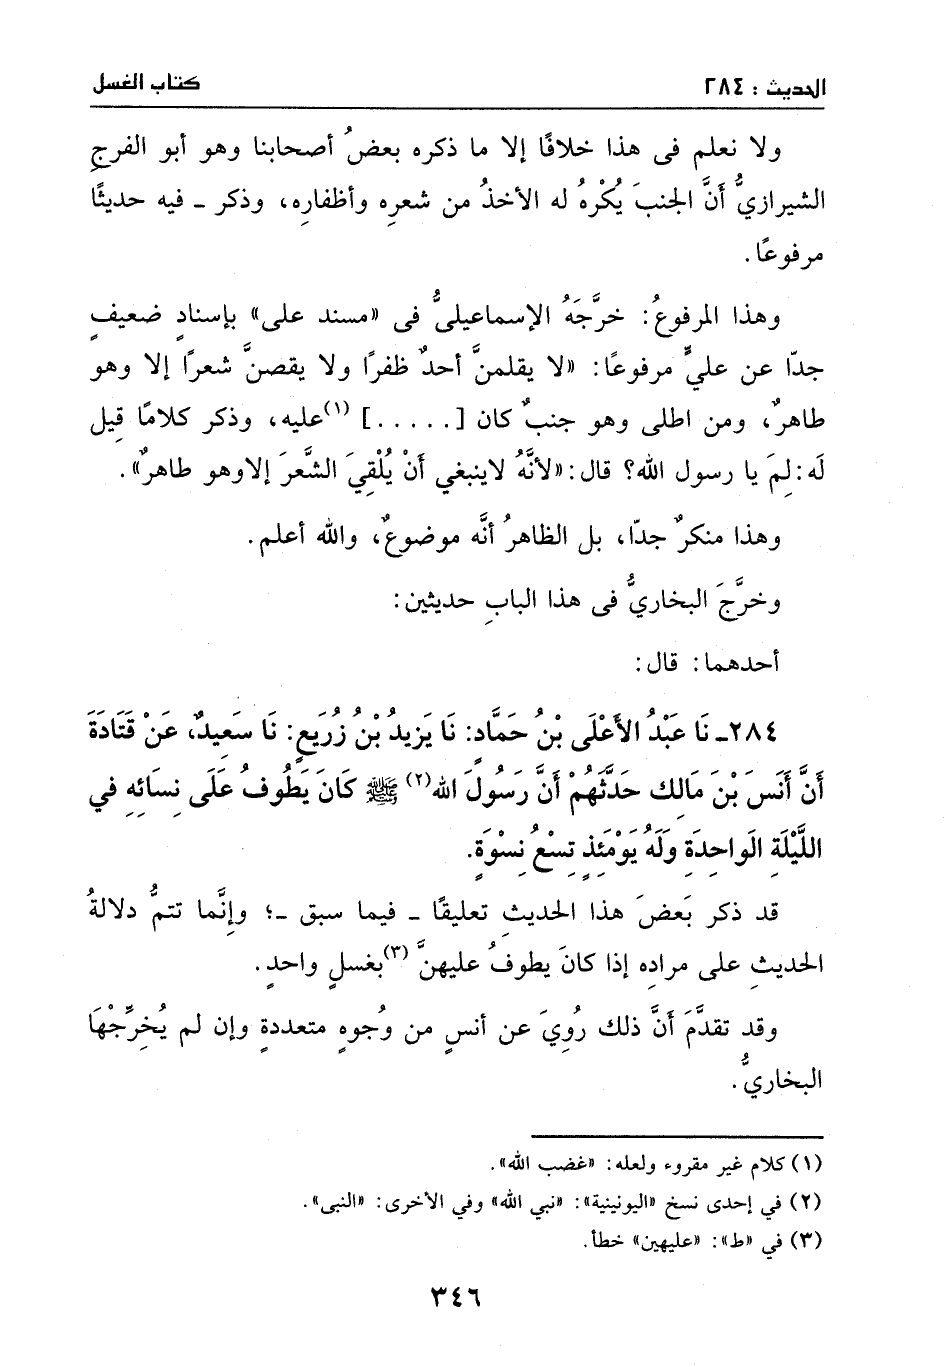 الحديث : ٢٨٤
كتاب الغسل
ولا نعلم فى هذا خلافًا إلا ما ذكره بعضُ أصحابنا وهو أبو الفرجِ
الشيرازيُّ أَنَّ الجنبَ يُكْرهُ له الأخذُ من شعرِه وأظفارِه، وذكر ـ فيه حديثًا
مرفوعًا .
وهذا المرفوعُ: خرَّجَهُ الإسماعيلىُّ فى «مسند على» بإسنادٍ ضعيفٍ
جدّا عن علىٍّ مرفوعًا: «لا يقلمنَّ أحدٌ ظفرًا ولا يقصنَّ شعرًا إلا وهو
طاهرٌ، ومن اطلى وهو جنبٌ كان [ . . . . . ] (١)عليه، وذكر كلامًا قِيل
لَه: لِمَ يا رسول الله؟ قال: «لأنَّهُ لاينبغي أَنْ يُلْقِيَ الشَّعرَ إلاوهو طاهرٌ» .
وهذا منكرٌ جدّا، بل الظاهرُ أنَّه موضوعٌ، والله أعلم .
وخرَّجَ البخاريُّ فى هذا البابِ حديثين:
أحدهما: قال:
٢٨٤ـ نَا عَبْدُ الأَعْلَى بْنُ حَمَّادٍ: نَا يَزِيدُ بْنُ زُرَيعٍ: نَا سَعِيدٌ، عَنْ قَتَادَةَ
أَنَّ أَنَسَ بْنَ مَالِكٍ حَدَّثَهُمْ أَنَّ رَسُولَ الله(٢) ﷺ كَانَ يَطُوفُ عَلَى نِسَائِهِ فِي
اللَّيْلَةِ الوَاحِدَةِ وَلَهُ يَوْمَئِذٍ تِسْعُ نِسْوَةٍ.
قد ذكر بَعضَ هذا الحديثِ تعليقًا ـ فيما سبق ـ؛ وإنَّما تتمُّ دلالةُ
الحديثِ على مرادِه إذا كانَ يطوفُ عليهنَّ (٣)بغسلٍ واحدٍ .
وقد تقدَّمَ أَنَّ ذلك رُوِيَ عن أنسٍ من وُجوهٍ متعددةٍ وإن لم يُخرِّجْهَا
البخاريُّ .
(١) كلام غير مقروء ولعله: «غضب الله» .
(٢) في إحدى نسخ «اليونينية»: «نبي الله» وفي الأخرى: «النبى» .
(٣) في «ط»: «عليهين» خطأ .
٣٤٦